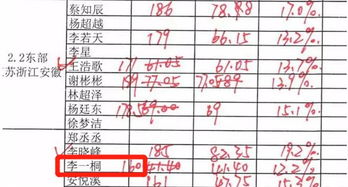 蔡知辰 186 78.98 17.0%.
杨超越
李若天 179 66.15 13.2%.
2.2东部
苏浙江安徽
李星
王浩歌 171 61.05 13.7%
谢彬彬 199 77.05 13.9%
林超泽
杨廷东 178.5 69 15.1%.
徐梦洁
郑丞丞
李晓峰 185 82.35 19.2%.
李一桐 160 41.40 12.2%.
安悦溪 161 47.75 15.3%